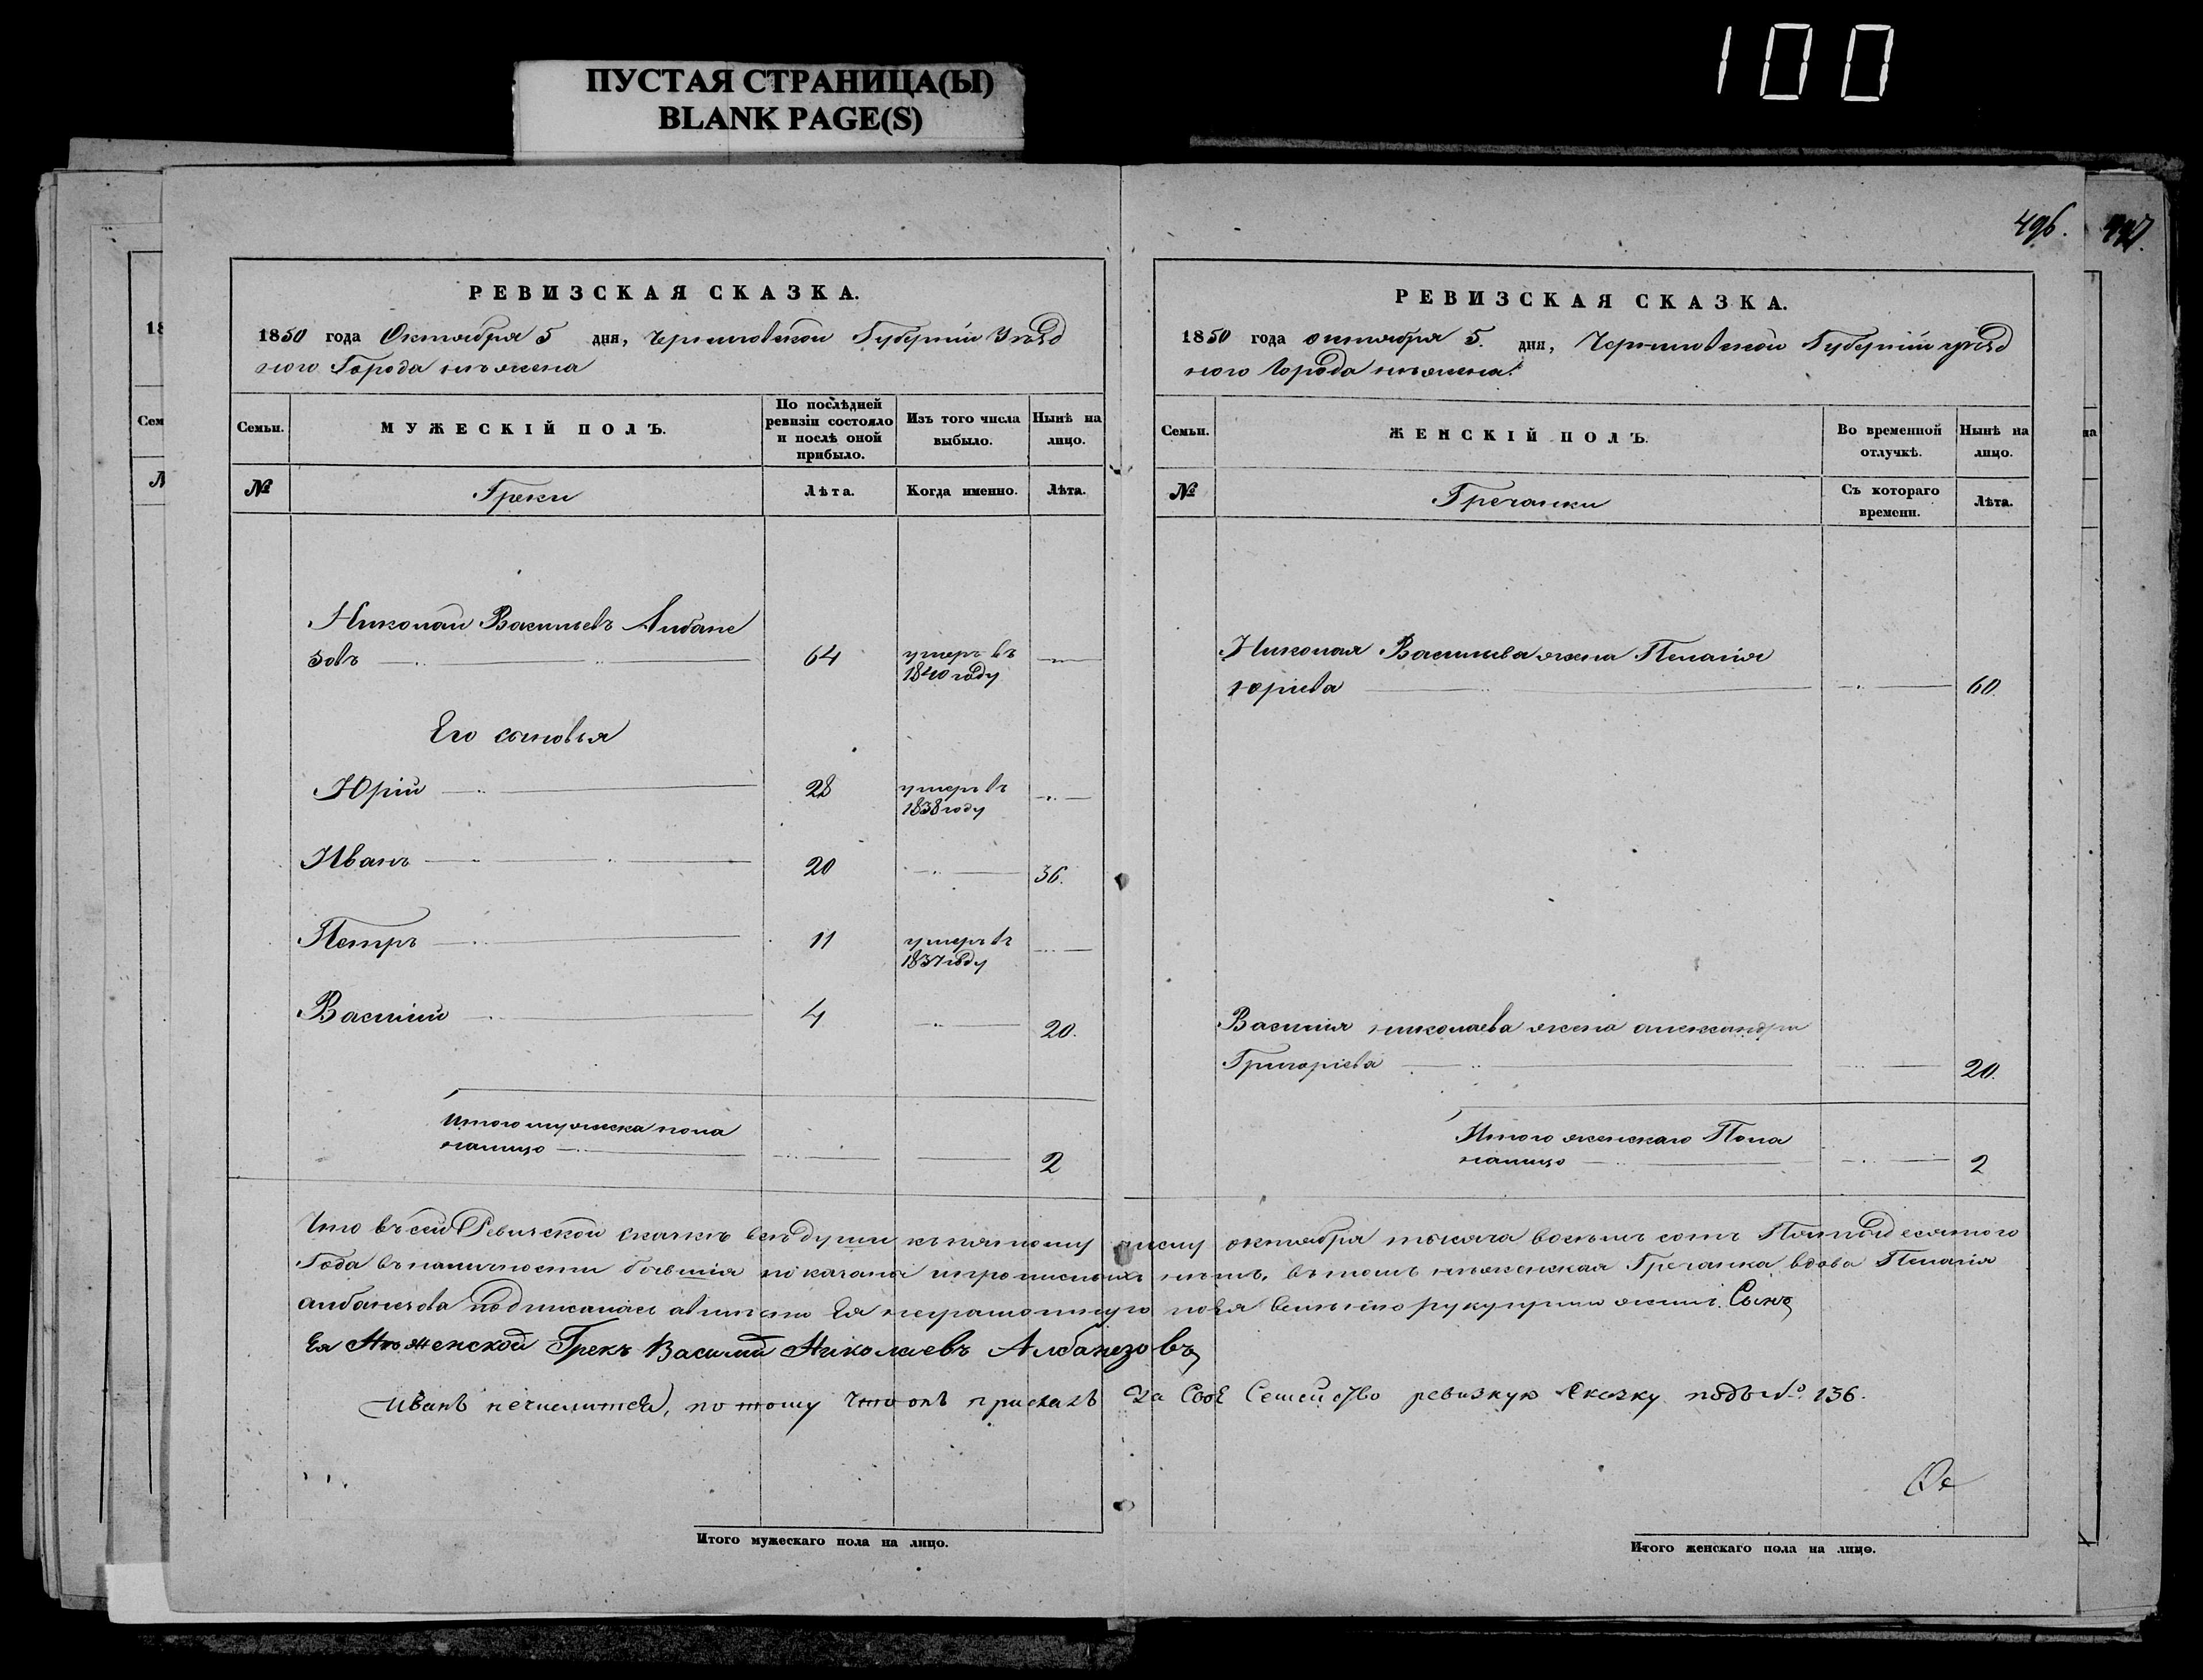 100
ПУСТАЯ СТРАНИЦА(Ы)
BLANK PAGE(S)
496.
РЕВИЗСКАЯ СКАЗКА.
1850 года Октября 5 дня, Черниговской Губернiи Уѣзд
ного Города нѣжена
Семьи.
МУЖЕСКIЙ ПОЛЪ.
По послѣдней ревизiи состояло и послѣ оной прибыло.
Изъ того числа выбыло.
Нынѣ на лицо.
№
Греки
Лѣта.
Когда именно.
Лѣта.
Николай Васильевъ Албане
зовъ 64 умеръ въ
1840 году
Его сыновья
Юрiй 28 умеръ въ
1838 году
Иванъ 20 36.
Петръ 11 умеръ въ
1837 году
Василiй 4 20.
Итого мужеска пола
налицо 2
РЕВИЗСКАЯ СКАЗКА.
1850 года октября 5. дня, Черниговской Губернiи уѣзд
ного Города нѣжена
Семьи.
ЖЕНСКIЙ ПОЛЪ.
Во временной отлучкѣ.
Нынѣ на лицо.
№
Гречанки
Съ котораго времени.
Лѣта.
Николая Васильева жена Пелагiя
юрiева 60.
Василiя николаева жена александра
Григорiева 20.
Итого женскаго Пола
налицо 2
Что въ сей Ревизской сказкѣ всѣ души къ пятому числу октября тысяча восемь сотъ Пятидесятого
Года въ наличности бывшiя показаны и прописныхъ нѣтъ, въ томъ нѣженская Гречанка вдова Пелагiя
албанезова подписалась а вместо Ея неграмотную по Ея велѣнiю руку приложилъ Сынъ
Ея Нѣженской Грекъ Василий Николаевъ Албанезовъ
Иванъ нечислится, по тому что онъ прискалъ За Своё Семейство ревизкую Сказку подъ № 136.
Итого мужескаго пола на лицо.
Итого женскаго пола на лицо.